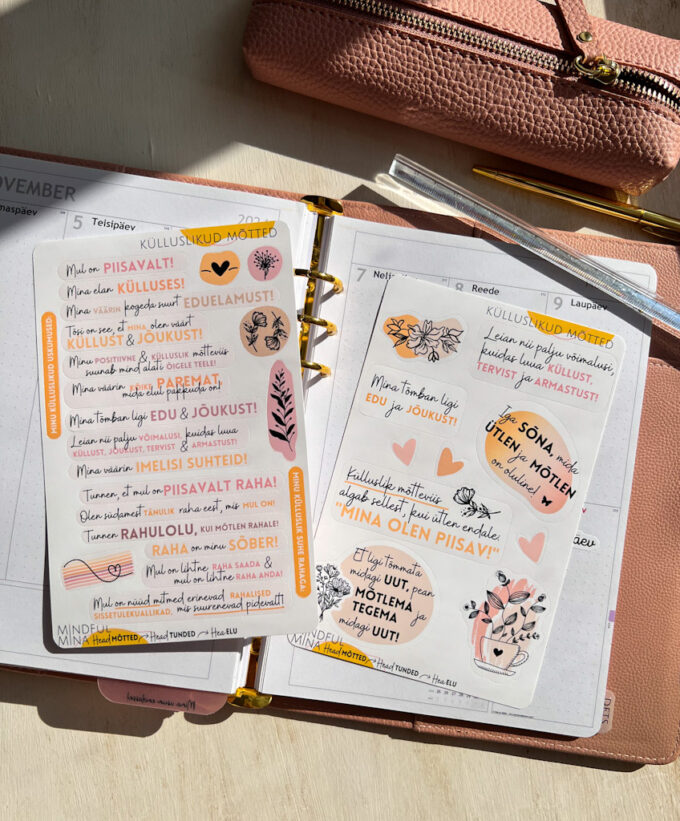 OVEMBER
maspäev
5 Teisipäev
KÜLLUSLIKUD MÕTTED
Mul on PIISAVALT!
Mina elan KÜLLUSES!
Mina VÄÄRIN kogeda suurt EDUELAMUST!
Tõsi on see, et MINA olen väärt
KÜLLUST & JÕUKUST!
Minu POSITIIVNE & KÜLLUSLIK mõtteviis
suunab mind alati ÕIGELE TEELE!
Mina väärin KÕIKE PAREMAT,
mida elul pakkuda on!
Mina tõmban ligi EDU & JÕUKUST!
Leian nii palju VÕIMALUSI, kuidas luua
KÜLLUST, JÕUKUST, TERVIST & ARMASTUST!
Mina väärin IMELISI SUHTEID!
MINU KÜLLUSLIKUD USKUMUSED:
Tunnen, et mul on PIISAVALT RAHA!
Olen südamest TÄNULIK raha eest, mis MUL ON!
Tunnen RAHULOLU, KUI MÕTLEN RAHALE!
RAHA on minu SÕBER!
Mul on lihtne RAHA SAADA &
mul on lihtne RAHA ANDA!
Mul on nüüd mitmed erinevad RAHALISED
SISSETULEKUALLIKAD, mis suurenevad pidevalt!
MINU KÜLLUSLIK SUHE RAHAGA:
MINDFUL
MINA Head MÕTTED → Head TUNDED → Hea ELU
7
8 Reede
9 Laupäev
KÜLLUSLIKUD MÕTTED
Leian nii palju võimalusi,
kuidas luua KÜLLUST,
TERVIST ja ARMASTUST!
Mina tõmban ligi
EDU ja JÕUKUST!
Iga SÕNA, mida
ÜTLEN ja MÕTLEN
on oluline!
Külluslik mõtteviis
algab sellest, kui ütlen endale:
"MINA OLEN PIISAV!"
Et ligi tõmmata
midagi UUT, pean
MÕTLEMA
TEGEMA
ja
midagi UUT!
MINDFUL
MINA Head MÕTTED → Head TUNDED → Hea ELU